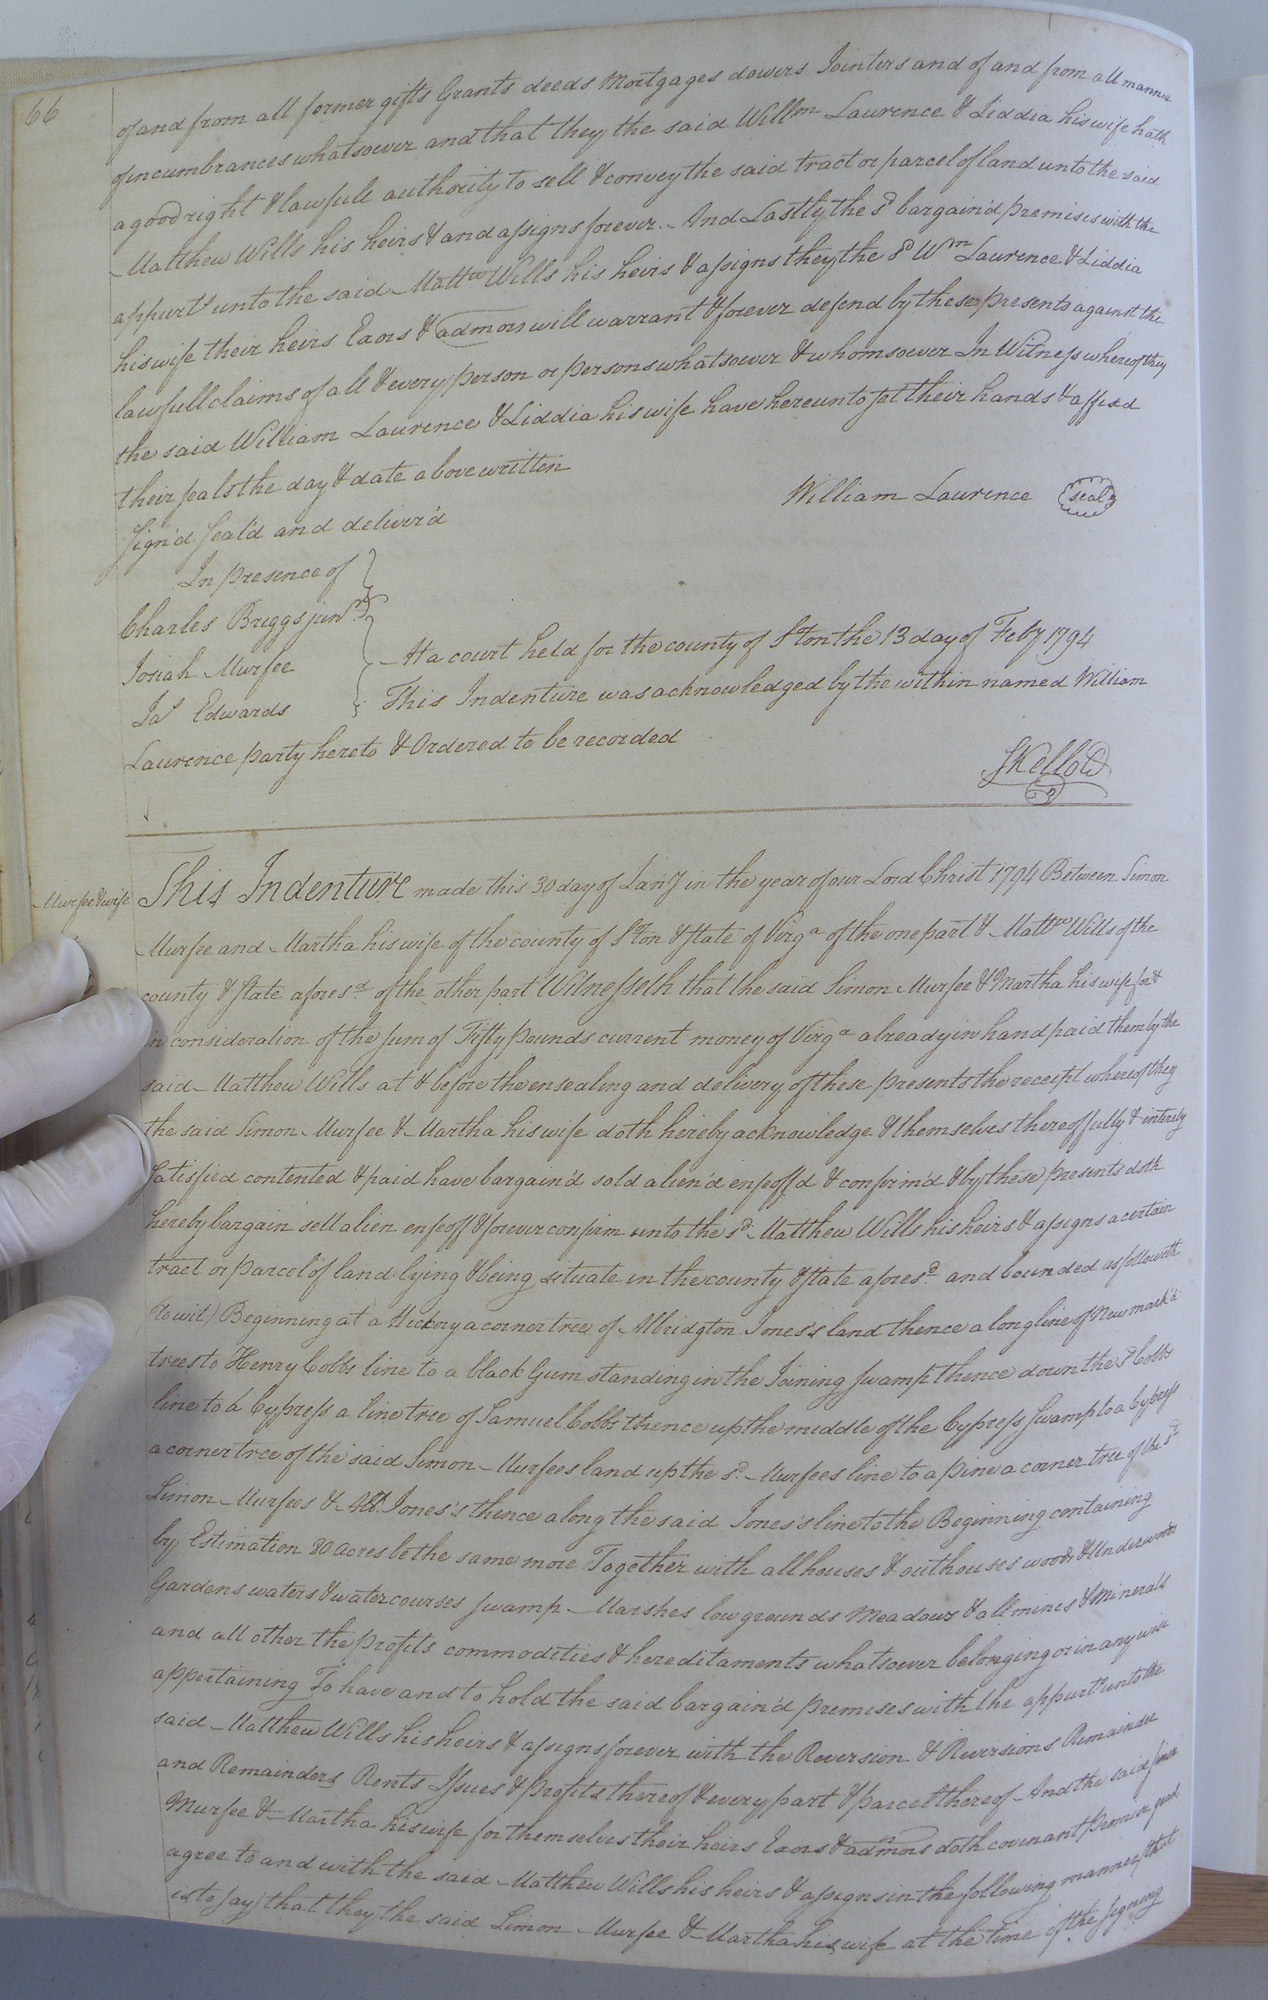 66
of and from all former gifts Grants deeds Mortgages dowers Jointers and of and from all manner
of incumbrances whatsoever and that they the said Willm Laurence & Liddia his wife hath
a good right & lawfull authority to sell & convey the said tract or parcel of land unto the said
Matthew Wills his heirs & and assigns forever. And Lastly the sd bargain'd premises with the
appurts unto the said Mattw Wills his heirs & assigns they the sd Wm Laurence & Liddia
his wife their heirs Exors & admors will warrant & forever defend by these presents against the
lawfull claims of all & every person or persons whatsoever & whomsoever In Witness whereof they
the said William Laurence & Liddia his wife have hereunto set their hands & affixd
their seals the day & date above written
Sign'd Seal'd and deliver'd
William Laurence seal
In presence of
Charles Briggs junr
Josiah Murfee
Jas Edwards
At a court held for the county of Ston the 13 day of Feby 1794
This Indenture was acknowledged by the within named William
Laurence party hereto & Ordered to be recorded
SKello Cl
Murfee & wife
This Indenture made this 30 day of Jany in the year of our Lord Christ 1794 Between Simon
Murfee and Martha his wife of the county of Ston & state of Virga of the one part & Mattw Wills of the
county & state aforesd of the other part Witnesseth that the said Simon Murfee & Martha his wife for &
in consideration of the sum of Fifty pounds current money of Virga already in hand paid them by the
said Matthew Wills at & before the ensealing and delivery of these presents the receipt whereof they
the said Simon Murfee & Martha his wife doth hereby acknowledge & themselves thereof fully & intirely
satisfied contented & paid have bargain'd sold alien'd enfeoff'd & confirm'd & by these presents doth
hereby bargain sell alien enfeoff & forever confirm unto the sd Matthew Wills his heirs & assigns a certain
tract or parcel of land lying & being situate in the county & state aforesd and bounded as followeth
(to wit) Beginning at a Hickory a corner tree of Albridgton Jones's land thence along line of New mark'd
trees to Henry Cobbs line to a black Gum standing in the Joining swamp thence down the sd Cobbs
line to a Cypress a line tree of Samuel Cobbs thence up the middle of the Cypress Swamp to a Cypress
a corner tree of the said Simon Murfees land up the sd Murfees line to a pine a corner tree of the sd
Simon Murfees & Alb. Jones's thence along the said Jones's line to the Beginning containing
by Estimation 80 acres be the same more Together with all houses & outhouses woods & Underwoods
Gardens waters & water courses swamp Marshes low grounds Meadows & all mines & Minerals
and all other the profits commodities & hereditaments whatsoever belonging or in any wise
appertaining To have and to hold the said bargain'd premises with the appurts unto the
said Matthew Wills his heirs & assigns forever with the Reversion & Reversions Remainder
and Remainders Rents Issues & profits thereof & every part & parcel thereof And the said Simon
Murfee & Martha his wife for themselves their heirs Exors & admors doth covenant promise and
agree to and with the said Matthew Wills his heirs & assigns in the following manner (that
is to say) that they the said Simon Murfee & Martha his wife at the time of the signing